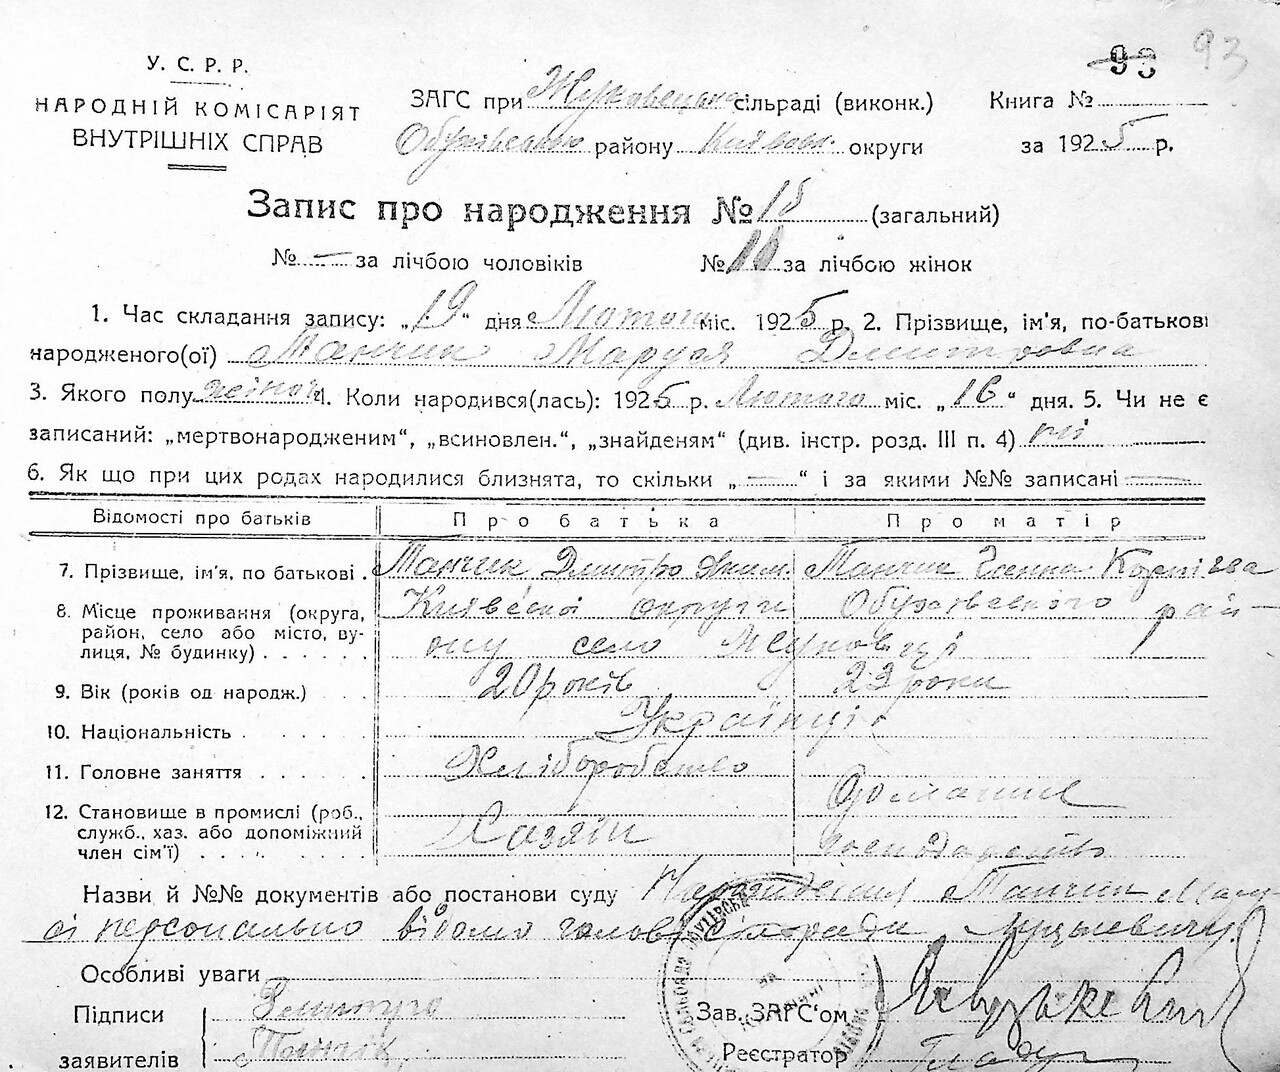 93 93
У. С. Р. Р.
НАРОДНІЙ КОМІСАРІЯТ
ВНУТРІШНІХ СПРАВ
ЗАГС при сільраді (виконк.) Книга №
району округи за 1925 р.
Запис про народження № 15 (загальний)
№ — за лічбою чоловіків № 10 за лічбою жінок
1. Час складання запису: „19“ дня Лютого міс. 1925 р. 2. Прізвище, ім'я, по-батькові
народженого(ої) Танчик Маруся Дмитровна
3. Якого полу жіноч 4. Коли народився(лась): 1925 р. Лютого міс. „16“ дня. 5. Чи не є
записаний: „мертвонародженим“, „всиновлен.“, „знайденям“ (див. інстр. розд. III п. 4) ні
6. Як що при цих родах народилися близнята, то скільки „—“ і за якими №№ записані —
Відомості про батьків Про батька Про матір
7. Прізвище, ім'я, по батькові . Танчик Дмитро Яким. Танчик Ганна
8. Місце проживання (округа, Київської округи Обухівського рай-
район, село або місто, ву-
лиця, № будинку) . . . . . . ону село Жуковці
9. Вік (років од народж.) . . . 20 років 23 роки
10. Національність . . . . . . . Українці
11. Головне заняття . . . . . . Хліборобство Домашнє
12. Становище в промислі (роб.,
служб., хаз. або допоміжний Хазяїн господарство
член сім'ї) . . . . . . . .
Назви й №№ документів або постанови суду Народження Танчик Мару
сі персонально відомо голові сільради
Особливі уваги
Підписи Дмитро Зав. ЗАГС'ом
заявителів Танчик Реєстратор